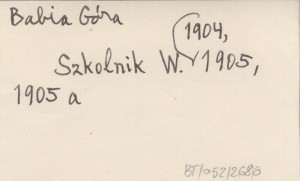 Babia Góra
1904,
Szkolnik W. 1905,
1905 a
BT/952/2686